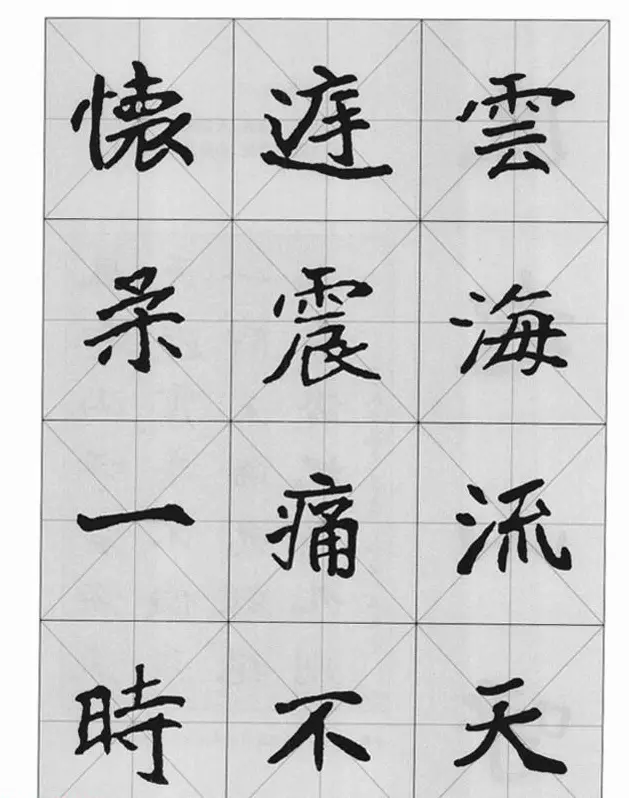 雲海流天
震痛不
懷柔一時